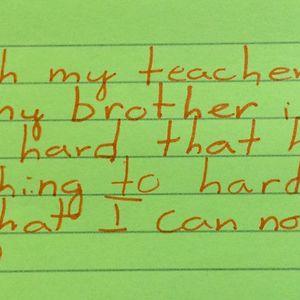 h my teacher
my brother i
hard, that h
hing to hard
hat I can no